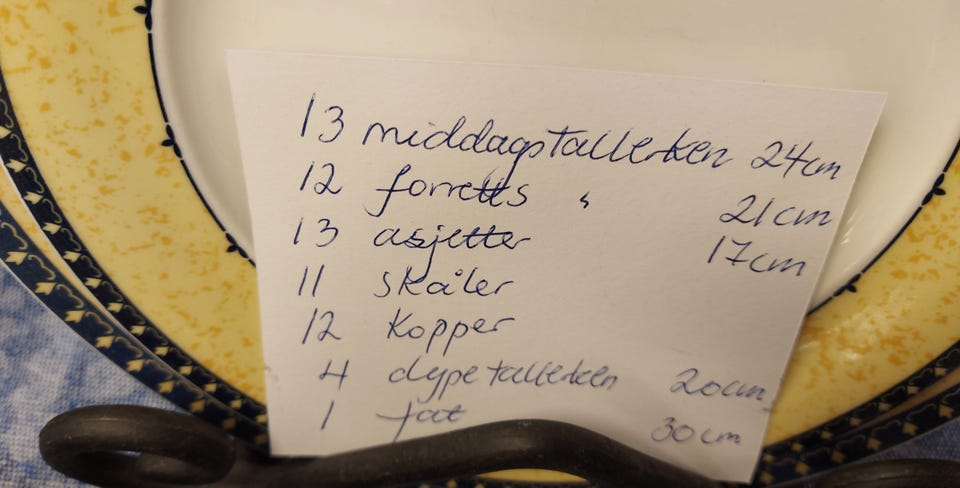 13 middagstallerken 24cm
12 forretts " 21cm
13 asjetter 17cm
11 skåler
12 kopper
4 dype tallerken 20cm
1 fat 30cm